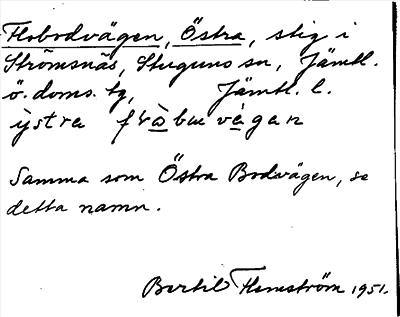 Flobodvägen, Östra, stig i
Strömsnäs, Stuguns sn, Jämtl.
ö. doms. tg, Jämtl. l.
ỳstra
Samma som Östra Bodvägen, se
detta namn.
Bertil Flemström 1951.